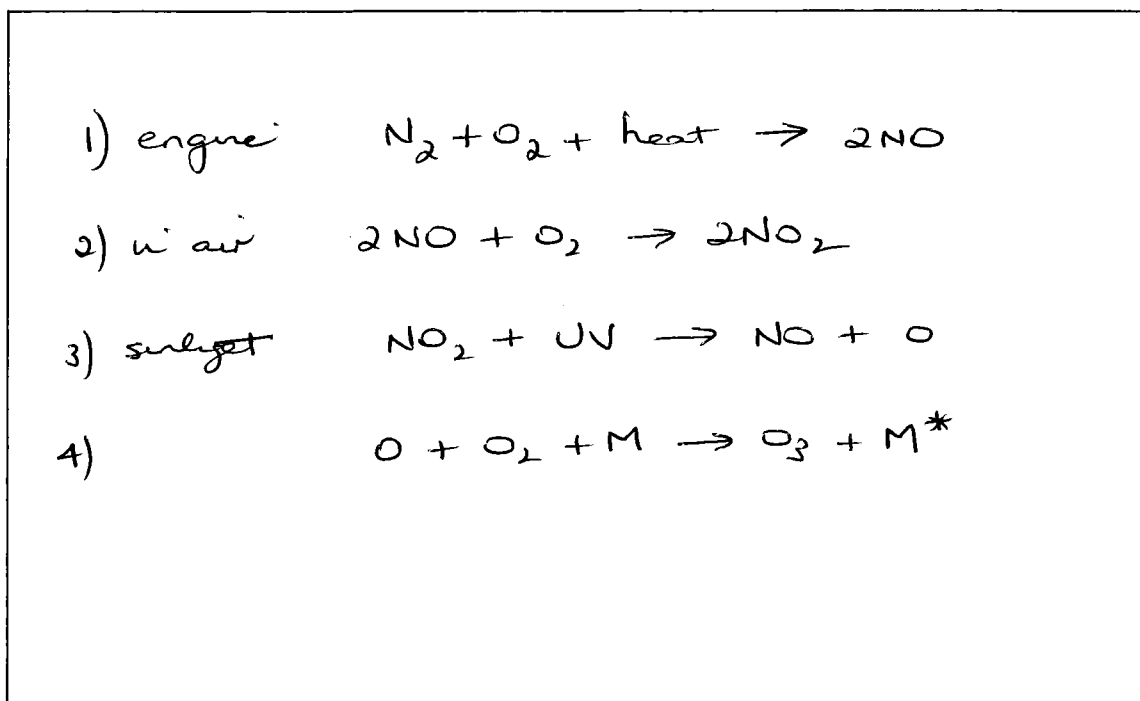 1) engine N₂ + O₂ + heat → 2NO
2) in air 2NO + O₂ → 2NO₂
3) sunlight NO₂ + UV → NO + O
4) O + O₂ + M → O₃ + M*